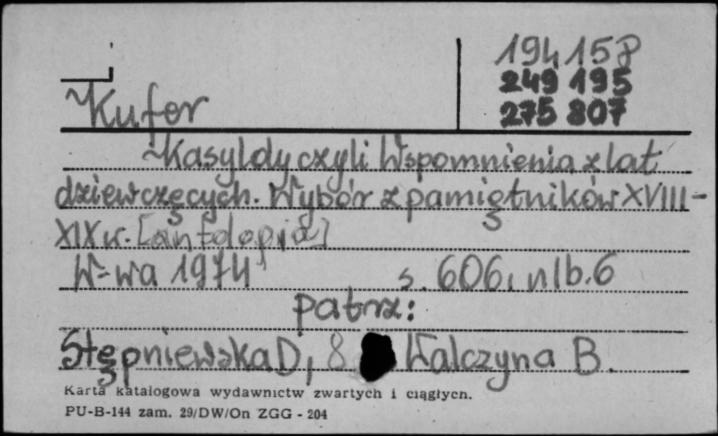 194 15 P
249 195
275 807
Kufer
Kasyldy czyli Wspomnienia z lat
dziewczęcych. Wybór z pamiętników XVIII-
XIX w. [antologia]
W-wa 1974 s. 606, nlb. 6
patrz:
Stępniewska D, & Walczyna B.
Karta katalogowa wydawnictw zwartych i ciągłych.
PU-B-144 zam. 29/DW/On ZGG - 204